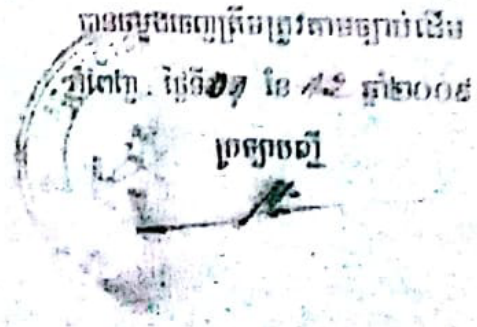 បានស្រង់ចេញត្រឹមត្រូវតាមច្បាប់ដើម
ភ្នំពេញ. ថ្ងៃទី ខែ 12 ឆ្នាំ២០០៩
ក្រឡាបញ្ជី